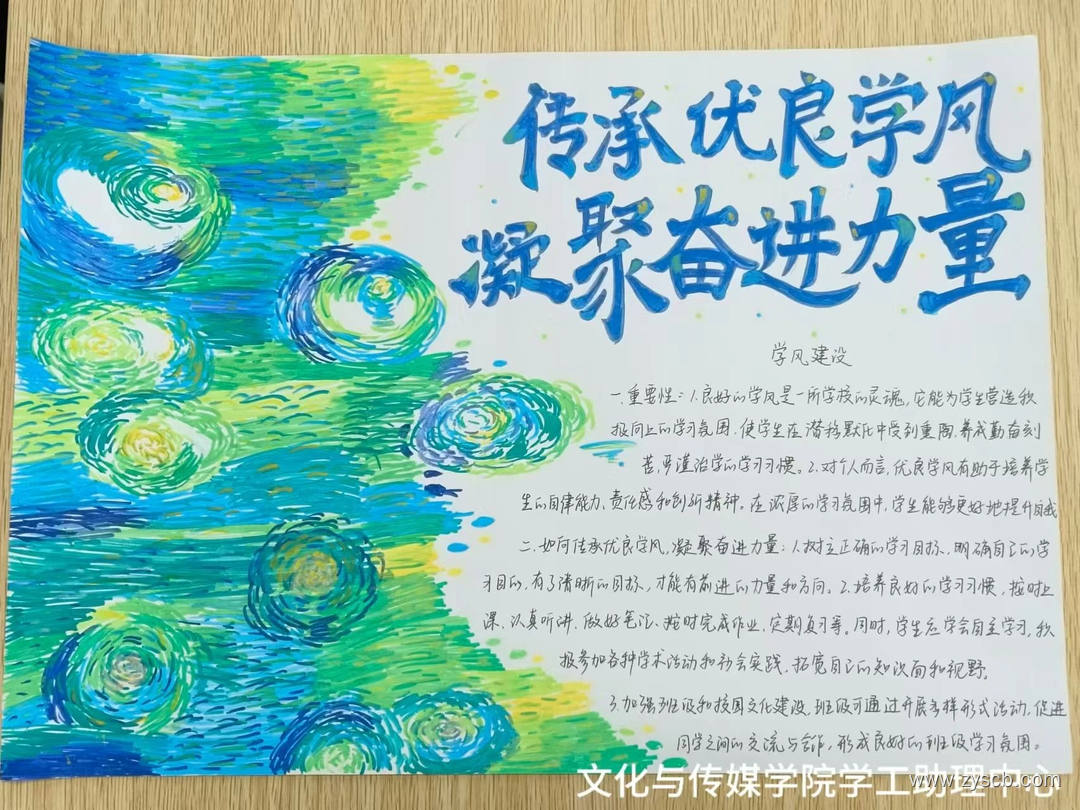 传承优良学风
凝聚奋进力量
学风建设
一.重要性：1.良好的学风是一所学校的灵魂，它能为学生营造积
极向上的学习氛围，使学生在潜移默化中受到熏陶，养成勤奋刻
苦，严谨治学的学习习惯。2.对个人而言，优良学风有助于培养学
生的自律能力、责任感和创新精神。在浓厚的学习氛围中，学生能够更好地提升自我
二.如何传承优良学风，凝聚奋进力量：1.树立正确的学习目标，明确自己的学
习目的，有了清晰的目标，才能有前进的力量和方向。2.培养良好的学习习惯，按时上
课、认真听讲、做好笔记、按时完成作业、定期复习等。同时，学生应学会自主学习，积
极参加各种学术活动和社会实践，拓宽自己的知识面和视野。
3.加强班级和校园文化建设，班级可通过开展多样形式活动，促进
同学之间的交流与合作，形成良好的班级学习氛围。
文化与传媒学院学工助理中心
www.zyscb.com